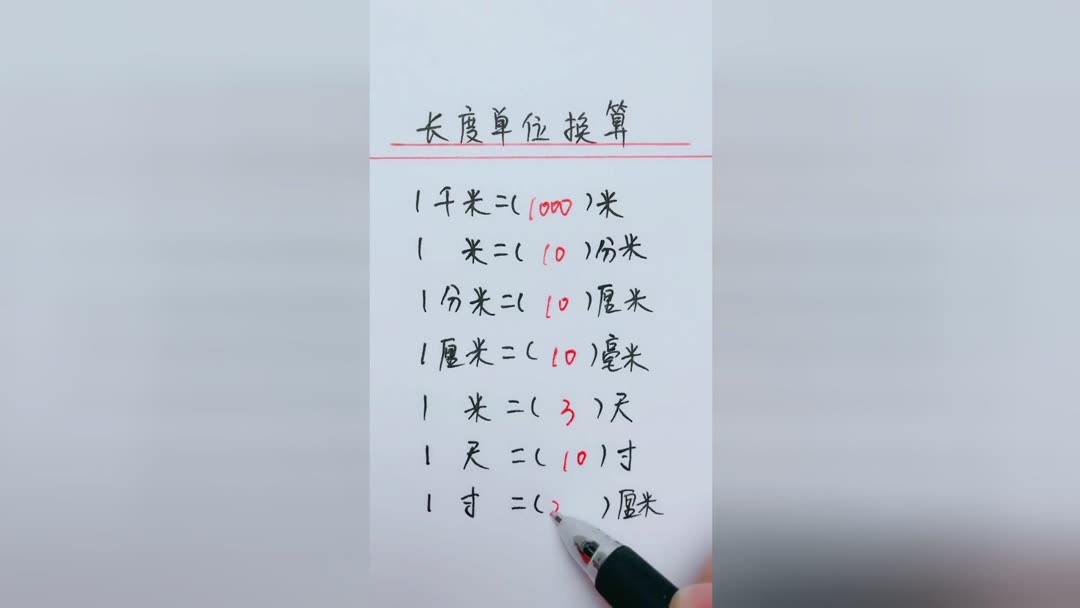 长度单位换算
1千米=(1000)米
1 米=(10)分米
1分米=(10)厘米
1厘米=(10)毫米
1 米=(3)尺
1 尺=(10)寸
1 寸=( )厘米